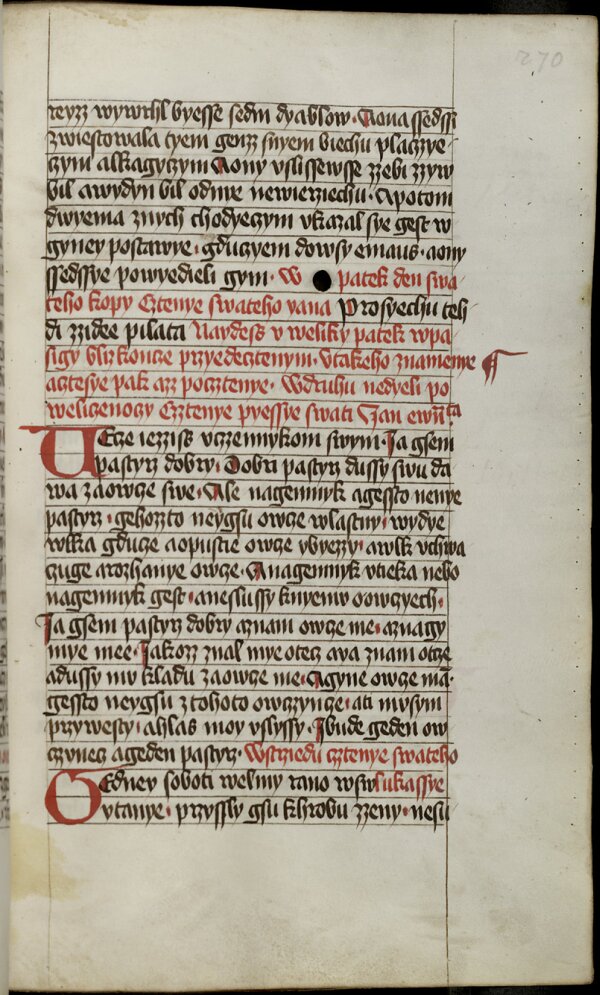 270
teyzz wywrhl byesse sedm dyablow · Aona ssedssi
zwiestowala tyem genzz snyem biechu placzye
czym alkagyczym Aony uslissewsse zzebi zzyw
bil awydyn bil odnye newierziechu · Apotom
dwyema znych chodyeczym ukazal sye gest w
gyney postawye · gduczyem dowsy emaus · aony
ssedssye powyedieli gym · W patek den swa
teho kopy Cztenye swateho yana Prosyechu teh
di zzidee pilata Naydess v weliky patek wpa
sigy blizkoncze przyedecztenym · Utakeho znamenye
acztesye pak azz pocztenye · Wdruhu nedyeli po
weliczenoczy Cztenye pyessye swati Jan ewanta
Uecze iezziss uczzennykom swym · Ja gsem
pastyrz dobry · Dobri pastyrz dussy swu da
wa zaowcze swe · Ale nagemnyk agessto nenye
pastyrz · gehozzto neygsu owcze wlastny · wydye
wlka gducze aopustie owcze ybyezzy · awlk uchwa
czuge arozhanye owcze · Anagemnyk utieka nebo
nagemnyk gest · aneslussy knyemu oowczyech ·
Ja gsem pastyrz dobry aznam owcze me · aznagy
mye mee · Jakozz znal mye otecz aya znam otcze
adussy mu kladu zaowcze me · Agyne owcze mā ·
gessto neygsu ztohoto owczyncze · ati musym
przywesty · ahlas moy uslyssy · Jbude geden ow
czynecz ageden pastyrz · Wstrziedu cztenye swateho
Gedney soboti welmy rano wsw lukassye
ytanye · przyssly gsu khrobu zzeny · nesu